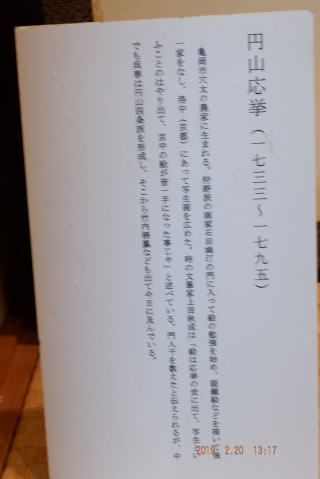 円山応挙（一七三三〜一七九五）
亀岡市穴太の農家に生まれる。狩野派の画家石田幽汀の門に入って絵の勉強を始め、眼鏡絵などを描い
一家をなし、洛中（京都）にあって写生画を広めた。時の文筆家上田秋成は「絵は応挙の世に出て、写生
ふことのはやり出て、京中の絵が皆一手になった事じゃ」と述べている。門人千を数えたと伝えられるが、中
でも呉春は円山四条派を形成し、そこから竹内栖鳳なども出て今日に及んでいる。
2019. 2.20 13:17